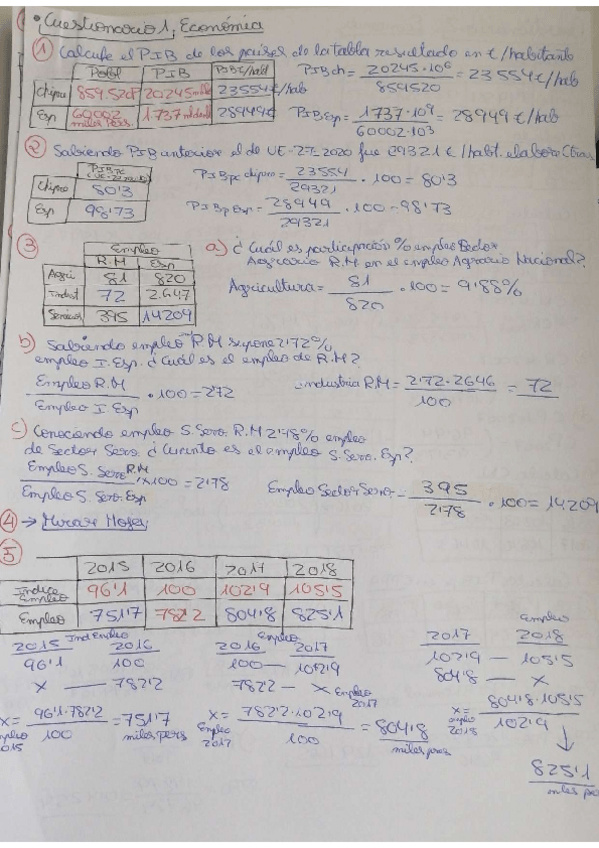 Cuestionario 1, Económia
1 Calcule el PIB de los paises de la tabla resultado en €/habitante
Pobl PIB PIB€/habt
Chipre 859.520P 20245mlls 23554€/hab
Esp 60002 miles pers. 1'737 mldeuld 28949€
PIBch = 20245·10⁶ / 859520 = 23554€/hab
PIBEsp = 1'737·10⁹ / 60002·10³ = 28949 €/hab
2 Sabiendo PIB anterior el de UE-27-2020 fue 29321€/habt. elabora
PIBpc
Chipre 80'3
Esp 98'73
PIBpc chipre = 23554 / 29321 · 100 = 80'3
PIBp Esp = 28949 / 29321 · 100 = 98'73
3 Empleo
R.M Esp
Agri 81 820
Indust 72 2.647
Servicios 395 14209
a) ¿Cuál es participación % empleo Sector
Agrario R.M en el empleo Agrario Nacional?
Agricultura = 81 / 820 · 100 = 9'88%
b) Sabiendo empleo R.M supone 2'72%
empleo I. Esp. ¿Cuál es el empleo de R.M?
Empleo R.M / Empleo I. Esp · 100 = 2'72
Industria R.M = 2'72·2646 / 100 = 72
c) Conociendo empleo S. Serv. R.M 2'78% empleo
de Sector Serv. ¿Cuanto es el empleo S. Serv. Esp?
Empleo S. Serv R.M / Empleo S. Serv. Esp x100 = 2'78
Empleo Sector Serv = 395 / 2'78 · 100 = 14209
4 → Mirar Hojas
5
2015 2016 2017 2018
Indice Empleo 96'1 100 102'9 105'5
Empleo 751'7 782'2 804'8 825'1
2015 Ind Empleo 2016
96'1 100
x — 782'2
x = 96'1·782'2 / 100 = 751'7 miles pers
2015
Empleo
2016 2017
100 — 102'9
782'2 — x Empleo 2017
x = 782'2·102'9 / 100 = 804'8 miles pers
Empleo 2017
Empleo
2017 2018
102'9 — 105'5
804'8 — x
x = 804'8·105'5 / 102'9
empleo 2018
825'1
miles per